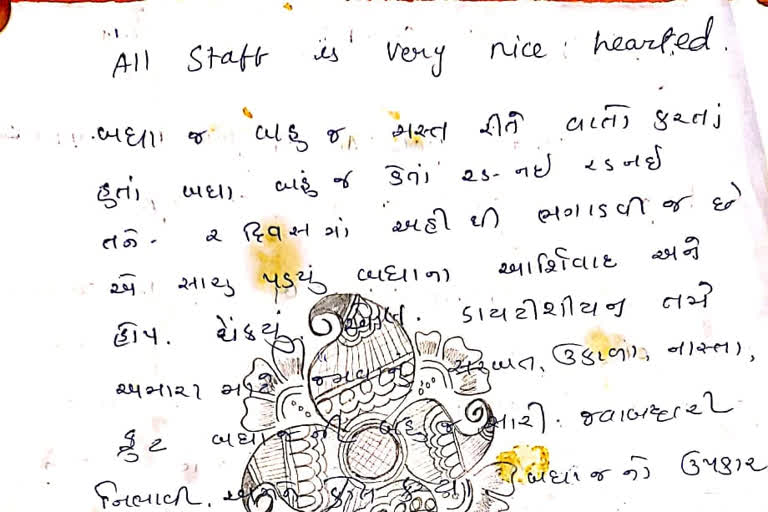 All Staff is very nice hearted.
બધા જ બહુ જ મસ્ત રીતે વાતો કરતાં
હતાં બધા. બહું જ કેતાં રડ-નઈ રડનઈ
તને. ૨ દિવસમાં અહી થી ભગાડવી જ છે
એ સાચુ પડયું બધાના આર્શિવાદ અને
ડાયટીશીયન તમે
અમારા માટે જમવાનું, સરબત, ઉકાળા, નાસ્તા,
ફ્રુટ બધાજની બહુ જ સારી. જવાબદારી
નિભાવી. બધાજ નો ઉપકાર